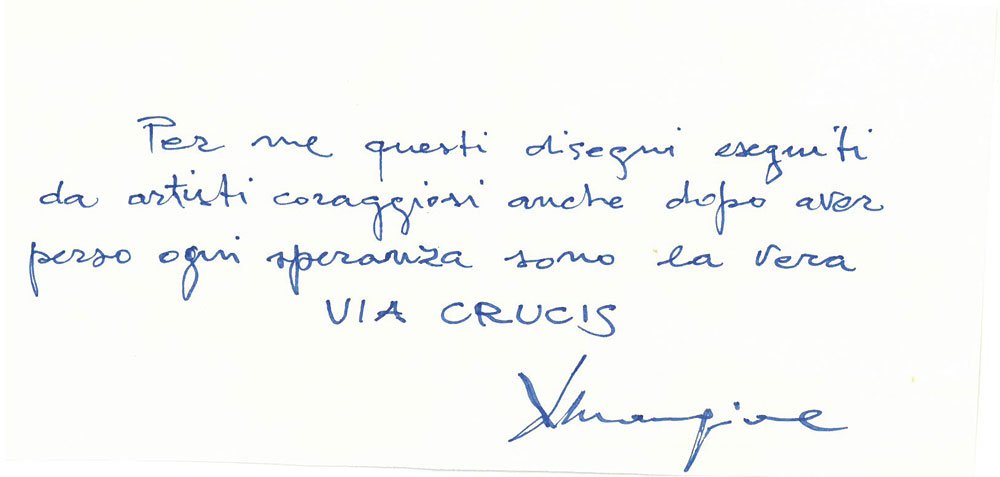 Per me questi disegni eseguiti
da artisti coraggiosi anche dopo aver
perso ogni speranza sono la vera
VIA CRUCIS